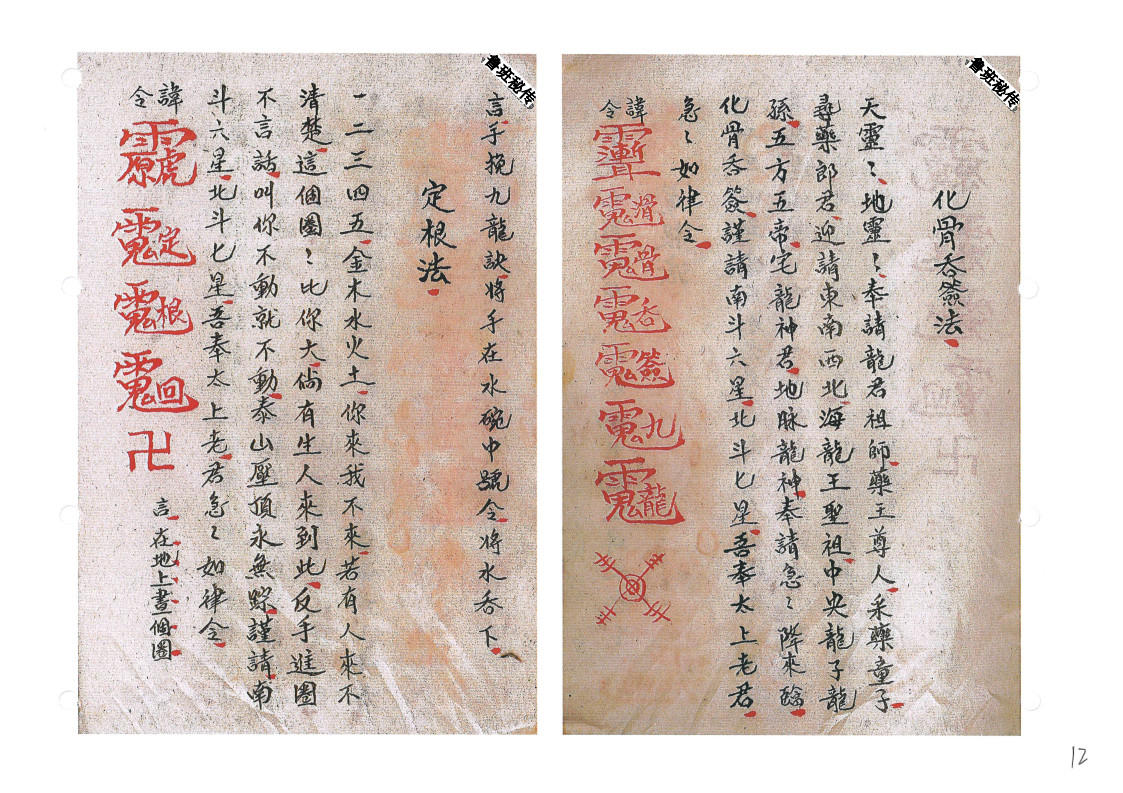 鲁班秘传
化骨吞簽法
天靈〻地靈〻奉請龍君祖師藥王尊人采藥童子
尋藥郎君迎請東南西北海龍王聖祖中央龍子龍
孫五方五帝宅龍神君地脉龍神奉請急〻降來臨
化骨吞簽謹請南斗六星北斗七星吾奉太上老君
急〻如律令
諱令
滑
骨
吞
簽
九
龍
鲁班秘传
言手挽九龍訣將手在水碗中號令將水吞下
定根法
一二三四五金木水火土你來我不來若有人來不
清楚這個圈〻比你大倘有生人來到此反手進圈
不言話叫你不動就不動泰山壓頂永無踪謹請南
斗六星北斗七星吾奉太上老君急〻如律令
諱令
定
根
回
卍
言在地上畫個圈
12